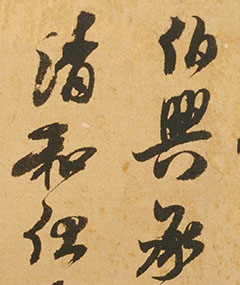 伯興承
清和